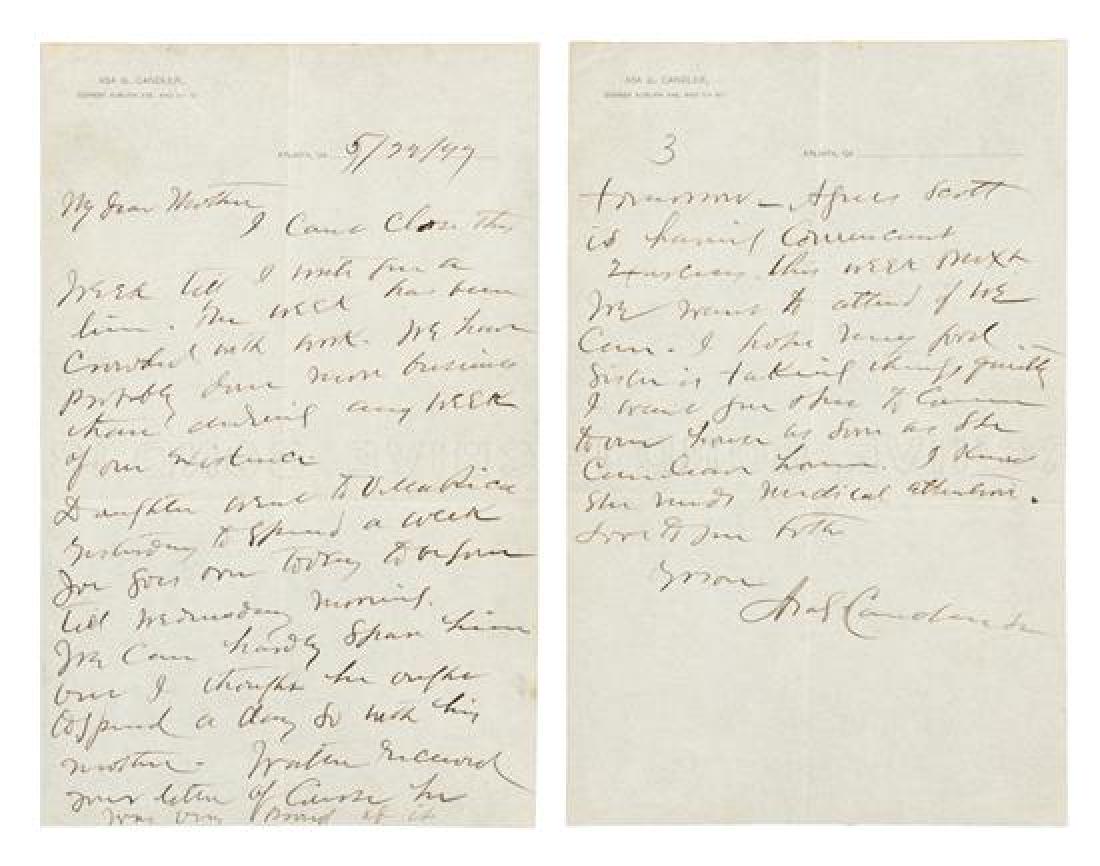 ASA G. CANDLER,
ATLANTA, GA.
My Dear Mother
I cant close this
week till I write you a
line. The week has been
crowded with work. We have
probably done more business
than during any week
of our existence.
Daughter went to Villa Rica
yesterday to spend a week
Joe goes over today to be gone
till Wednesday morning.
We can hardly spare him
but I thought he ought
to spend a day or so with his
mother. Walter received
your letter of course he
was very proud of it
ASA G. CANDLER,
3
ATLANTA, GA.
tomorrow - Agnes Scott
is having Commencement
Exercises this week next
We want to attend if we
can. I hope my good
Sister is taking things quietly
I want you & her to come
to our house as soon as she
can leave home. I know
she needs medical attention.
Love to you both
Yr son
Asa G Candler